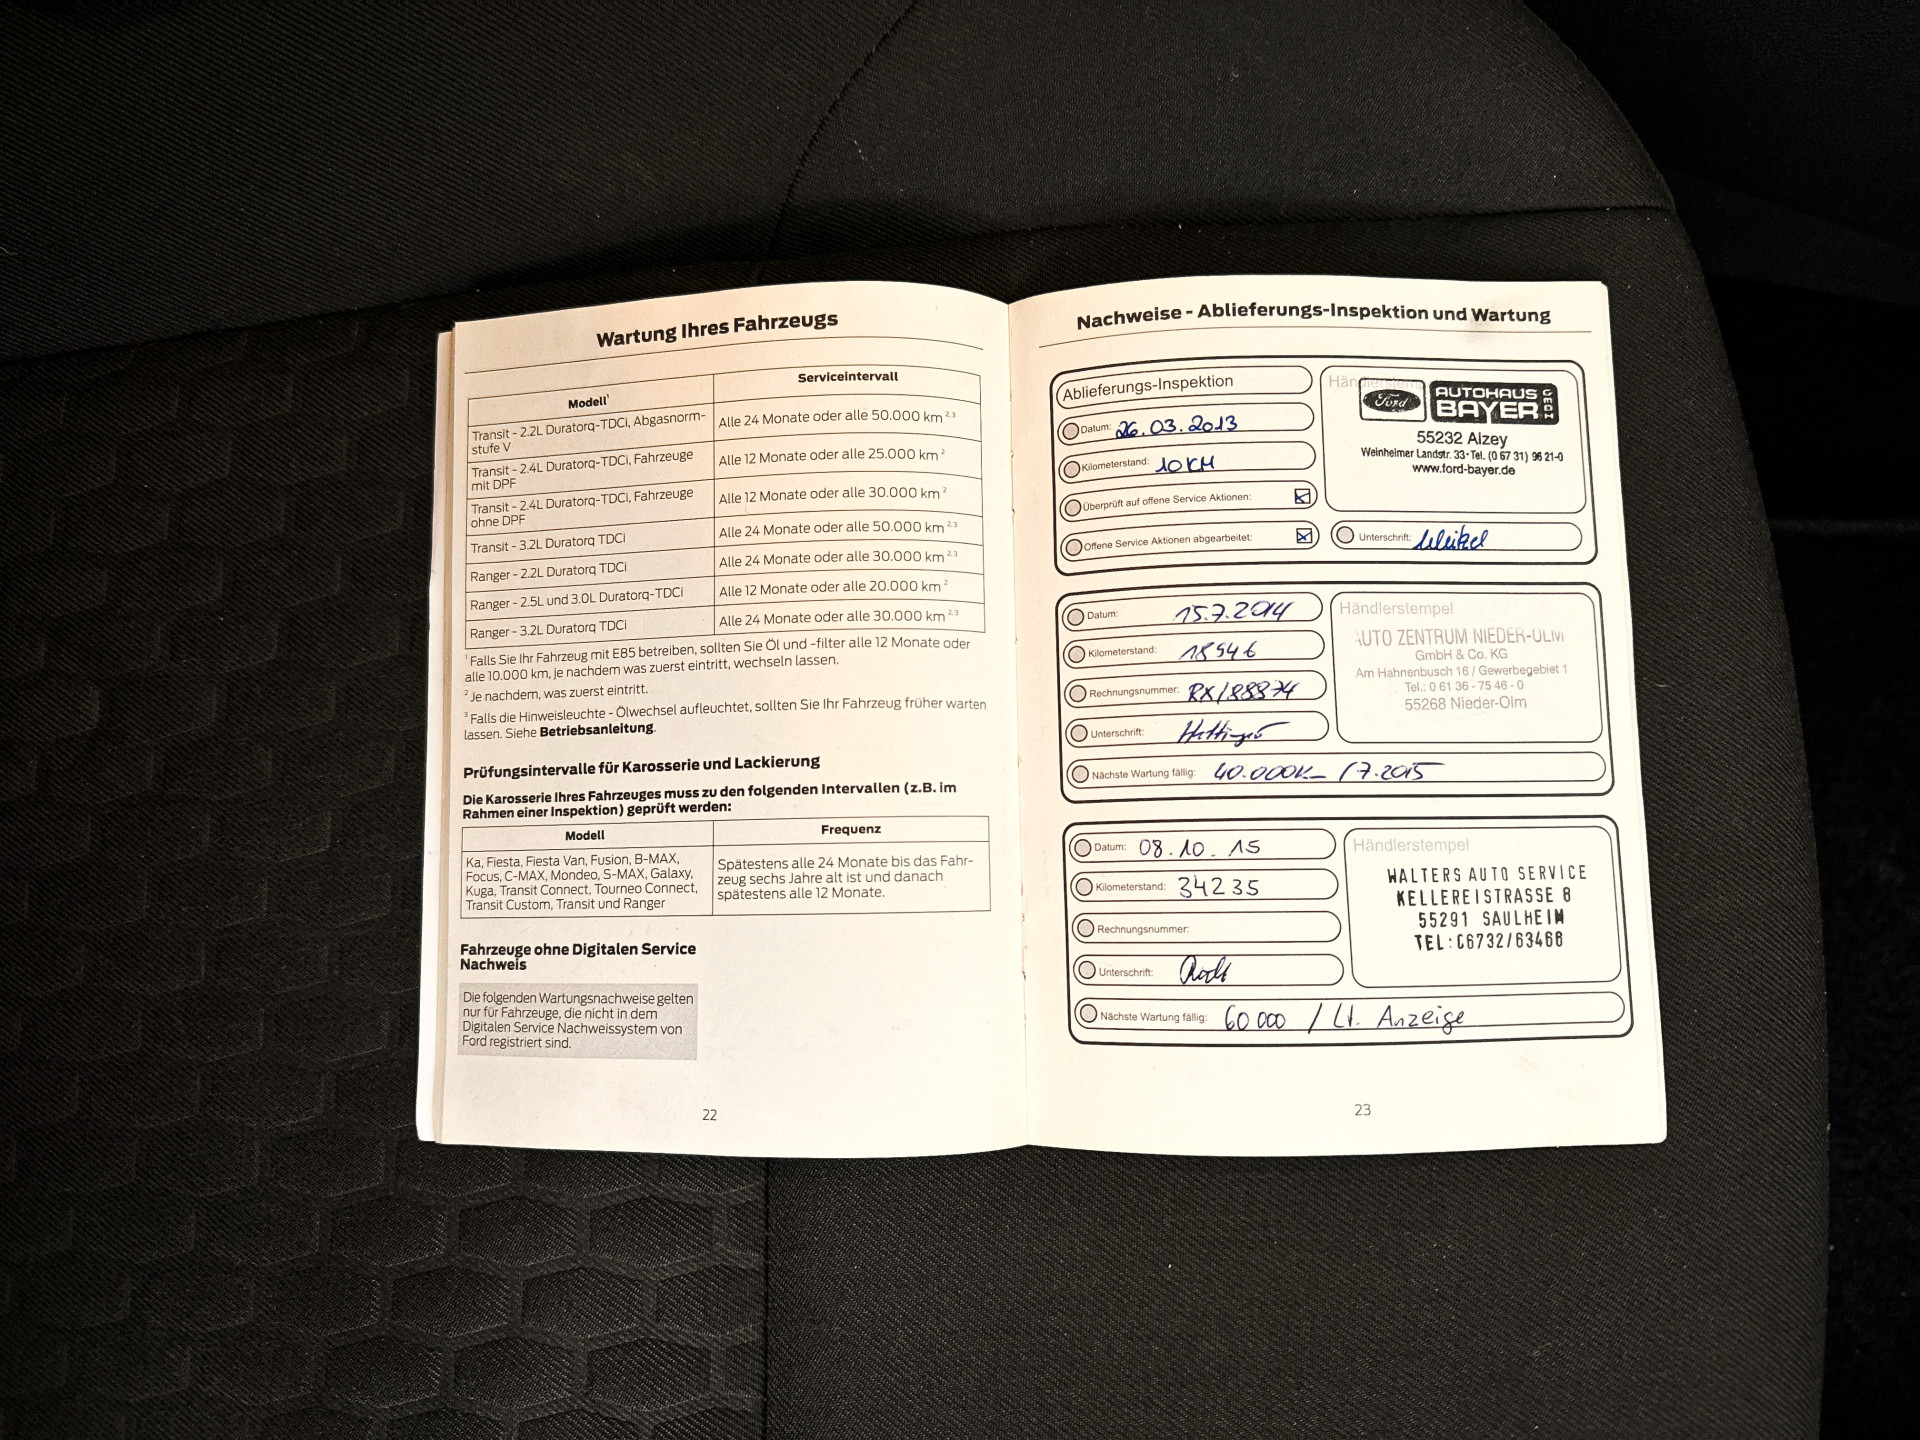 Wartung Ihres Fahrzeugs
Modell¹
Serviceintervall
Transit - 2.2L Duratorq-TDCi, Abgasnorm-
stufe V
Alle 24 Monate oder alle 50.000 km ²,³
Transit - 2.4L Duratorq-TDCi, Fahrzeuge
mit DPF
Alle 12 Monate oder alle 25.000 km ²
Transit - 2.4L Duratorq-TDCi, Fahrzeuge
ohne DPF
Alle 12 Monate oder alle 30.000 km ²
Transit - 3.2L Duratorq TDCi
Alle 24 Monate oder alle 50.000 km ²,³
Ranger - 2.2L Duratorq TDCi
Alle 24 Monate oder alle 30.000 km ²,³
Ranger - 2.5L und 3.0L Duratorq-TDCi
Alle 12 Monate oder alle 20.000 km ²
Ranger - 3.2L Duratorq TDCi
Alle 24 Monate oder alle 30.000 km ²,³
¹ Falls Sie Ihr Fahrzeug mit E85 betreiben, sollten Sie Öl und -filter alle 12 Monate oder
alle 10.000 km, je nachdem was zuerst eintritt, wechseln lassen.
² Je nachdem, was zuerst eintritt.
³ Falls die Hinweisleuchte - Ölwechsel aufleuchtet, sollten Sie Ihr Fahrzeug früher warten
lassen. Siehe Betriebsanleitung.
Prüfungsintervalle für Karosserie und Lackierung
Die Karosserie Ihres Fahrzeuges muss zu den folgenden Intervallen (z.B. im
Rahmen einer Inspektion) geprüft werden:
Modell
Frequenz
Ka, Fiesta, Fiesta Van, Fusion, B-MAX,
Focus, C-MAX, Mondeo, S-MAX, Galaxy,
Kuga, Transit Connect, Tourneo Connect,
Transit Custom, Transit und Ranger
Spätestens alle 24 Monate bis das Fahr-
zeug sechs Jahre alt ist und danach
spätestens alle 12 Monate.
Fahrzeuge ohne Digitalen Service
Nachweis
Die folgenden Wartungsnachweise gelten
nur für Fahrzeuge, die nicht in dem
Digitalen Service Nachweissystem von
Ford registriert sind.
22
Nachweise - Ablieferungs-Inspektion und Wartung
Ablieferungs-Inspektion
Datum: 26.03.2013
Kilometerstand: 10 KM
Überprüft auf offene Service Aktionen:
Offene Service Aktionen abgearbeitet:
Händlerstempel
Ford
AUTOHAUS
BAYER
GMBH
55232 Alzey
Weinheimer Landstr. 33 · Tel. (0 67 31) 96 21-0
www.ford-bayer.de
Unterschrift:
Datum: 15.7.2014
Kilometerstand: 18546
Rechnungsnummer: RX/88374
Unterschrift:
Nächste Wartung fällig: 40.000K / 7.2015
Händlerstempel
AUTO ZENTRUM NIEDER-OLM
GmbH & Co. KG
Am Hahnenbusch 16 / Gewerbegebiet 1
Tel.: 0 61 36 - 75 46 - 0
55268 Nieder-Olm
Datum: 08.10.15
Kilometerstand: 34235
Rechnungsnummer:
Unterschrift:
Nächste Wartung fällig: 60 000 / Lt. Anzeige
Händlerstempel
WALTERS AUTO SERVICE
KELLEREISTRASSE 8
55291 SAULHEIM
TEL:06732/63468
23